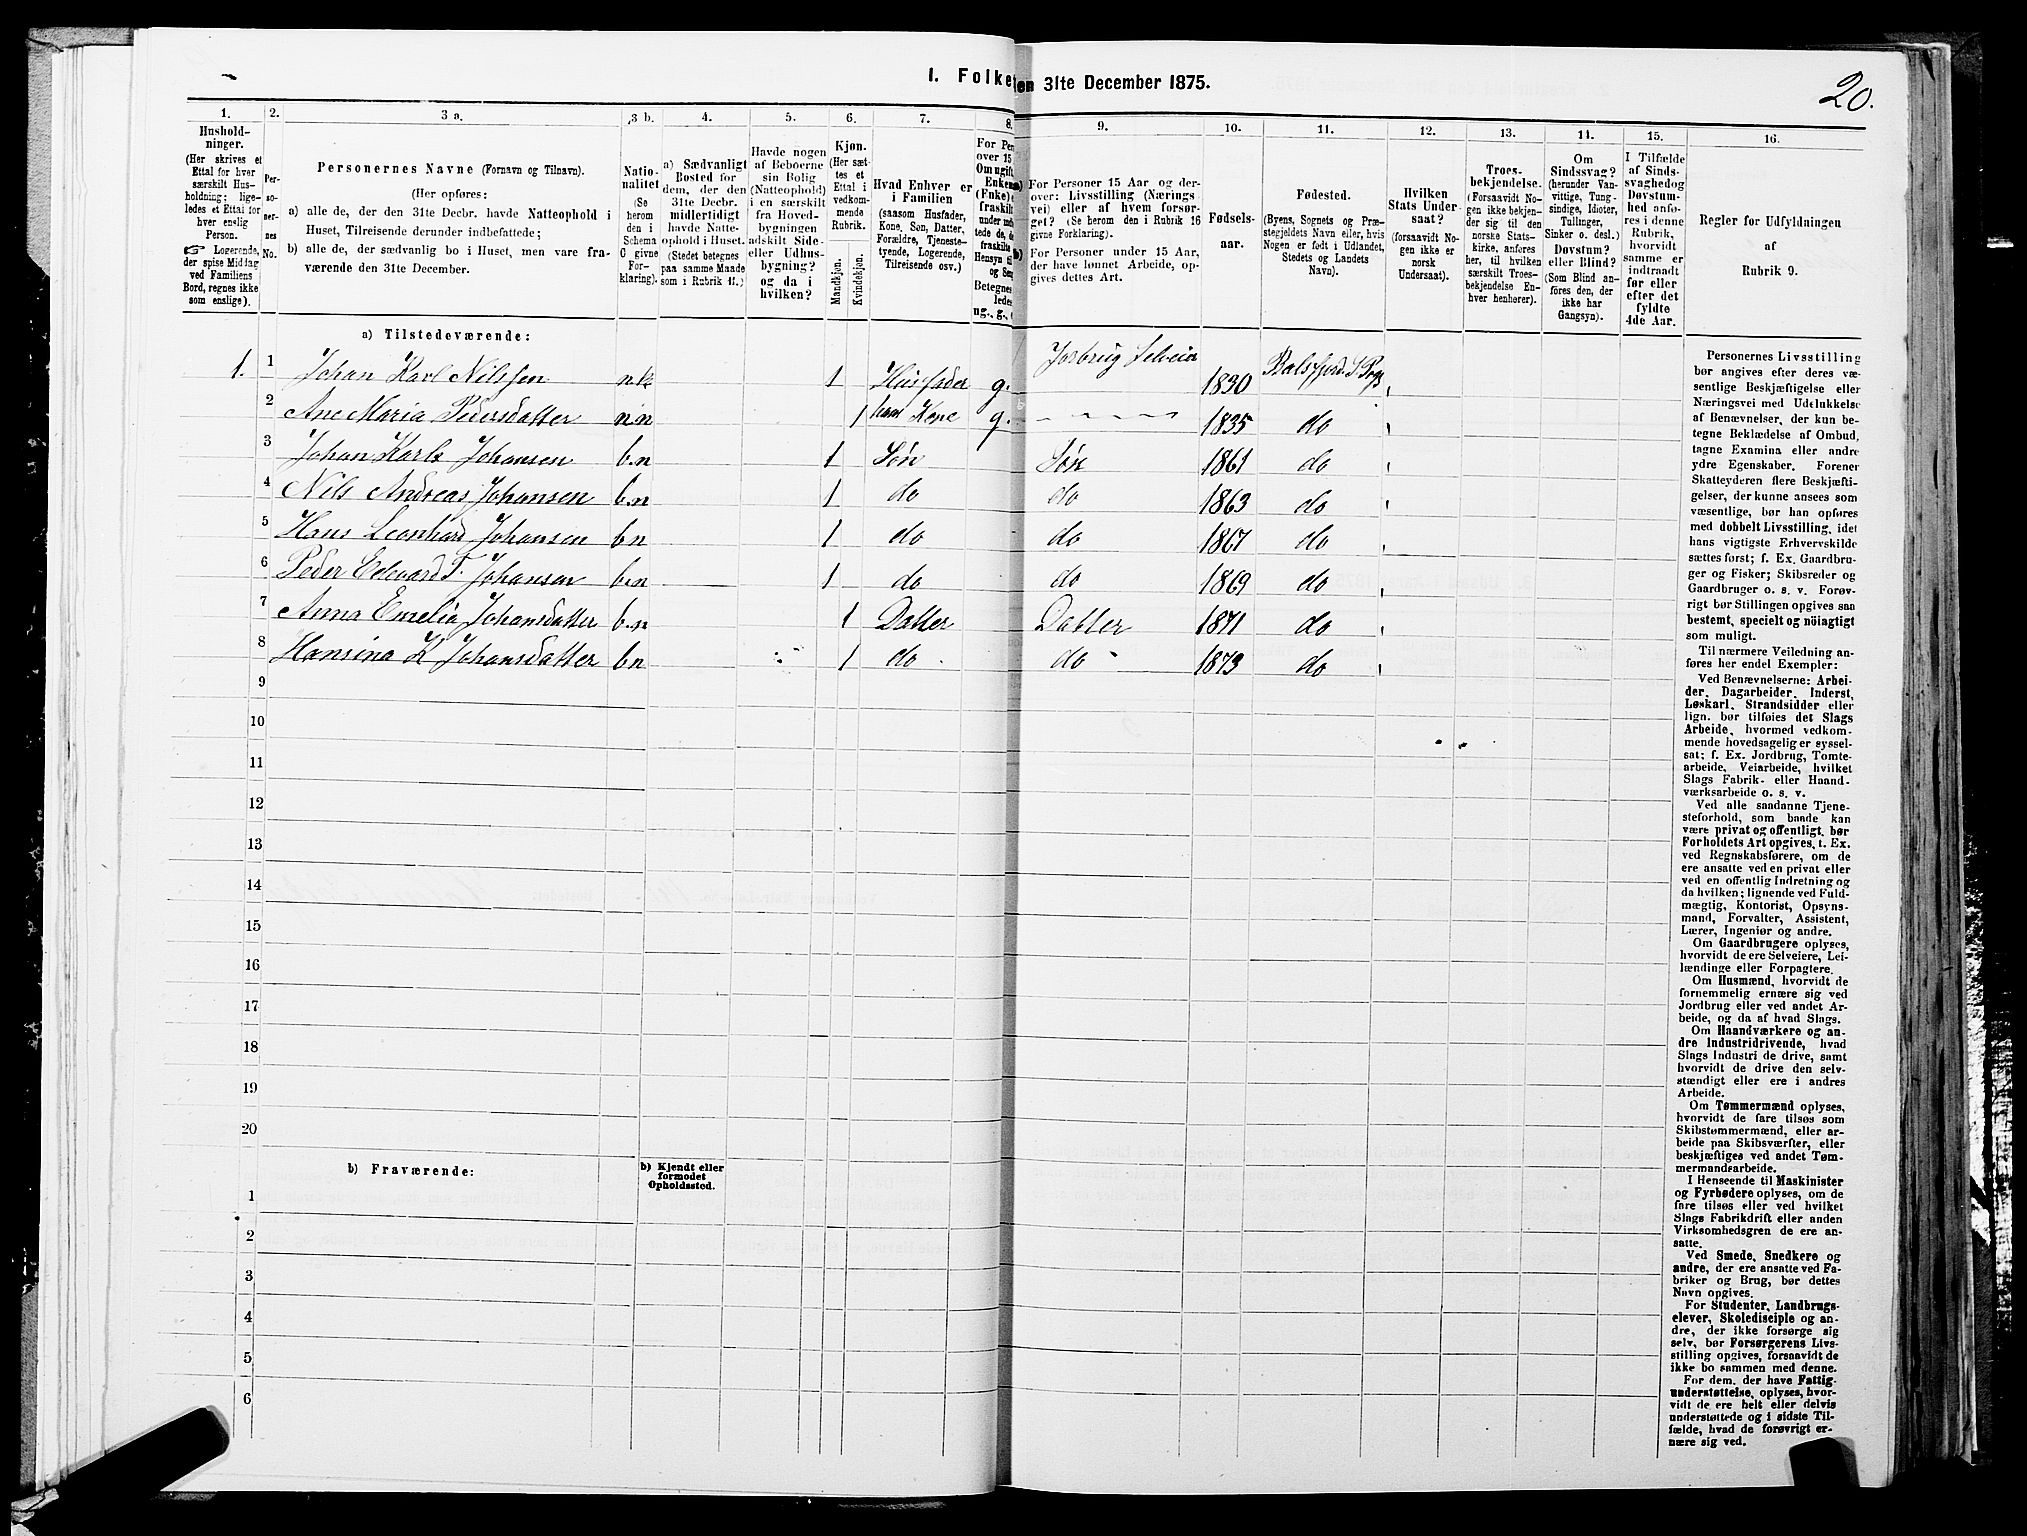 20.
I. Folke
en 31te December 1875.
1.
Hushold-
ninger.
(Her skrives et
Ettal for hver
særskilt Hus-
holdning; lige-
ledes et Ettal for
hver enslig
Person.
☞ Logerende,
der spise Middag
ved Familiens
Bord, regnes ikke
som enslige).
2.
Per-
so-
ner-
nes
No.
3 a.
Personernes Navne (Fornavn og Tilnavn).
(Her opføres:
a) alle de, der den 31te Decbr. havde Natteophold i
Huset, Tilreisende derunder indbefattede;
b) alle de, der sædvanlig bo i Huset, men vare fra-
værende den 31te December.
3 b.
Natio-
nalitet
(Se
herom
den i
Schema
C givne
For-
klaring).
4.
a) Sædvanligt
Bosted for
dem, der den
31te Decbr.
midlertidigt
havde Natte-
ophold i Huset.
(Stedet betegnes
paa samme Maade
som i Rubrik 11.)
5.
Havde nogen
af Beboerne
sin Bolig
(Natteophold)
i en særskilt
fra Hoved-
bygningen
adskilt Side-
eller Udhus-
bygning?
og da i
hvilken?
6.
Kjøn.
(Her sæt-
tes et
Ettal i
vedkom-
mende
Rubrik.
Mandkjøn.
Kvindekjøn.
7.
Hvad Enhver er
i Familien
(saasom Husfader,
Kone, Søn, Datter,
Forældre, Tjeneste-
tyende, Logerende,
Tilreisende osv.)
8.
For Per
over 15
Om ugift,
Enkem
(Enke) e
fraskilt
under med
tede de, d
fraskilte
Hensyn ti
og Sen
Betegnes
ledes
ug., g., e
9.
For Personer 15 Aar og der-
over: Livsstilling (Nærings
vei) eller af hvem forsør-
get? (Se herom den i Rubrik 16
givne Forklaring).
For Personer under 15 Aar,
der have lønnet Arbeide, op-
gives dettes Art.
10.
Fødsels-
aar.
11.
Fødested.
(Byens, Sognets og Præ-
stegjeldets Navn eller, hvis
Nogen er født i Udlandet,
Stedets og Landets
Navn).
12.
Hvilken
Stats Under-
saat?
(forsaavidt No-
gen ikke er
norsk
Undersaat).
13.
Troes-
bekjendelse.
(Forsaavidt No-
gen ikke bekjen-
der sig til den
norske Stats-
kirke, anføres
her, til hvilken
særskilt Troes-
bekjendelse En-
hver henhører).
14.
Om
Sindssvag?
(herunder Van-
vittige, Tung-
sindige, Idioter,
Tullinger,
Sinker o. desl.)
Døvstum?
eller Blind?
(Som Blind an-
føres den, der
ikke har
Gangsyn).
15.
I Tilfælde
af Sinds-
svaghed og
Døvstum-
hed anfø-
res i denne
Rubrik,
hvorvidt
samme er
indtraadt
før eller
efter det
fyldte
4de Aar.
16.
Regler for Udfyldningen
af
Rubrik 9.
a) Tilstedeværende:
1. 1 Johan Karl Nilssen n k 1 Husfader g. Jorbrug Selveier 1830 Balsfjord
2 Ane Maria Pedersdatter n n 1 hans Kone g. 1835 do
3 Johan Karls Johansen b.n 1 Søn Søn 1861 do
4 Nils Andreas Johansen b.n 1 do do 1863 do
5 Hans Leonhard Johansen b.n 1 do do 1867 do
6 Peder Edevard F. Johansen b.n 1 do do 1869 do
7 Anna Emelia Johansdatter b.n 1 Datter Datter 1871 do
8 Hansina K Johansdatter b.n 1 do do 1873 do
9
10
11
12
13
14
15
16
17
18
19
20
b) Fraværende:
b) Kjendt eller
formodet
Opholdssted.
1
2
3
4
5
6
Personernes Livsstilling
bør angives efter deres væ-
sentlige Beskjæftigelse eller
Næringsvei med Udelukkelse
af Benævnelser, der kun be-
tegne Beklædelse af Ombud,
tagne Examina eller andre
ydre Egenskaber. Forener
Skatteyderen flere Beskjæfti-
gelser, der kunne ansees som
væsentlige, bør han opføres
med dobbelt Livsstilling, idet
hans vigtigste Erhvervskilde
sættes først; f. Ex. Gaardbru-
ger og Fisker; Skibsreder og
Gaardbruger o. s. v. Forøv-
rigt bør Stillingen opgives saa
bestemt, specielt og nöiagtigt
som muligt.
Til nærmere Veiledning an-
føres her endel Exempler:
Ved Benævnelserne: Arbei-
der, Dagarbeider, Inderst,
Løskarl, Strandsidder eller
lign. bør tilføies det Slags
Arbeide, hvormed vedkom-
mende hovedsagelig er syssel-
sat; f. Ex. Jordbrug, Tomte-
arbeide, Veiarbeide, hvilket
Slags Fabrik- eller Haand-
værksarbeide o. s. v.
Ved alle saadanne Tjene-
steforhold, som baade kan
være privat og offentligt, bør
Forholdets Art opgives, t. Ex.
ved Regnskabsførere, om de
ere ansatte ved en privat eller
ved en offentlig Indretning og
da hvilken; lignende ved Fuld-
mægtig, Kontorist, Opsyns-
mand, Forvalter, Assistent,
Lærer, Ingeniør og andre.
Om Gaardbrugere oplyses,
hvorvidt de ere Selveiere, Lei-
lændinge eller Forpagtere.
Om Husmænd, hvorvidt de
fornemmelig ernære sig ved
Jordbrug eller ved andet Ar-
beide, og da af hvad Slags.
Om Haandværkere og an-
dre Industridrivende, hvad
Slags Industri de drive, samt
hvorvidt de drive den selv-
stændigt eller ere i andres
Arbeide.
Om Tømmermænd oplyses,
hvorvidt de fare tilsøs som
Skibstømmermænd, eller ar-
beide paa Skibsværfter, eller
beskjæftiges ved andet Tøm-
mermandsarbeide.
I Henseende til Maskinister
og Fyrbødere oplyses, om de
fare tilsøs eller ved hvilket
Slags Fabrikdrift eller anden
Virksomhedsgren de ere an-
satte.
Ved Smede, Snedkere og
andre, der ere ansatte ved Fa-
briker og Brug, bør dettes
Navn opgives.
For Studenter, Landbrugs-
elever, Skoledisciple og an-
dre, der ikke forsørge sig
selv, bør Forsørgerens Livs-
stilling opgives, forsaavidt de
ikke bo sammen med denne.
For dem, der have Fattig-
understøttelse, oplyses, hvor-
vidt de ere helt eller delvis
understøttede og i sidste Til-
fælde, hvad de forøvrigt er-
nære sig ved.